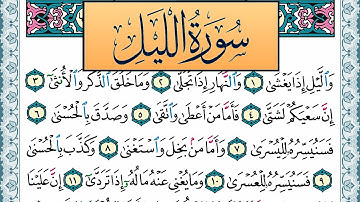 سُورَةُ اللَّيْلِ
وَٱلَّيْلِ إِذَا يَغْشَىٰ ١ وَٱلنَّهَارِ إِذَا تَجَلَّىٰ ٢ وَمَا خَلَقَ ٱلذَّكَرَ وَٱلْأُنثَىٰ ٣
إِنَّ سَعْيَكُمْ لَشَتَّىٰ ٤ فَأَمَّا مَنْ أَعْطَىٰ وَٱتَّقَىٰ ٥ وَصَدَّقَ بِٱلْحُسْنَىٰ ٦
فَسَنُيَسِّرُهُۥ لِلْيُسْرَىٰ ٧ وَأَمَّا مَنۢ بَخِلَ وَٱسْتَغْنَىٰ ٨ وَكَذَّبَ بِٱلْحُسْنَىٰ
٩ فَسَنُيَسِّرُهُۥ لِلْعُسْرَىٰ ١٠ وَمَا يُغْنِى عَنْهُ مَالُهُۥٓ إِذَا تَرَدَّىٰٓ ١١ إِنَّ عَلَيْنَا